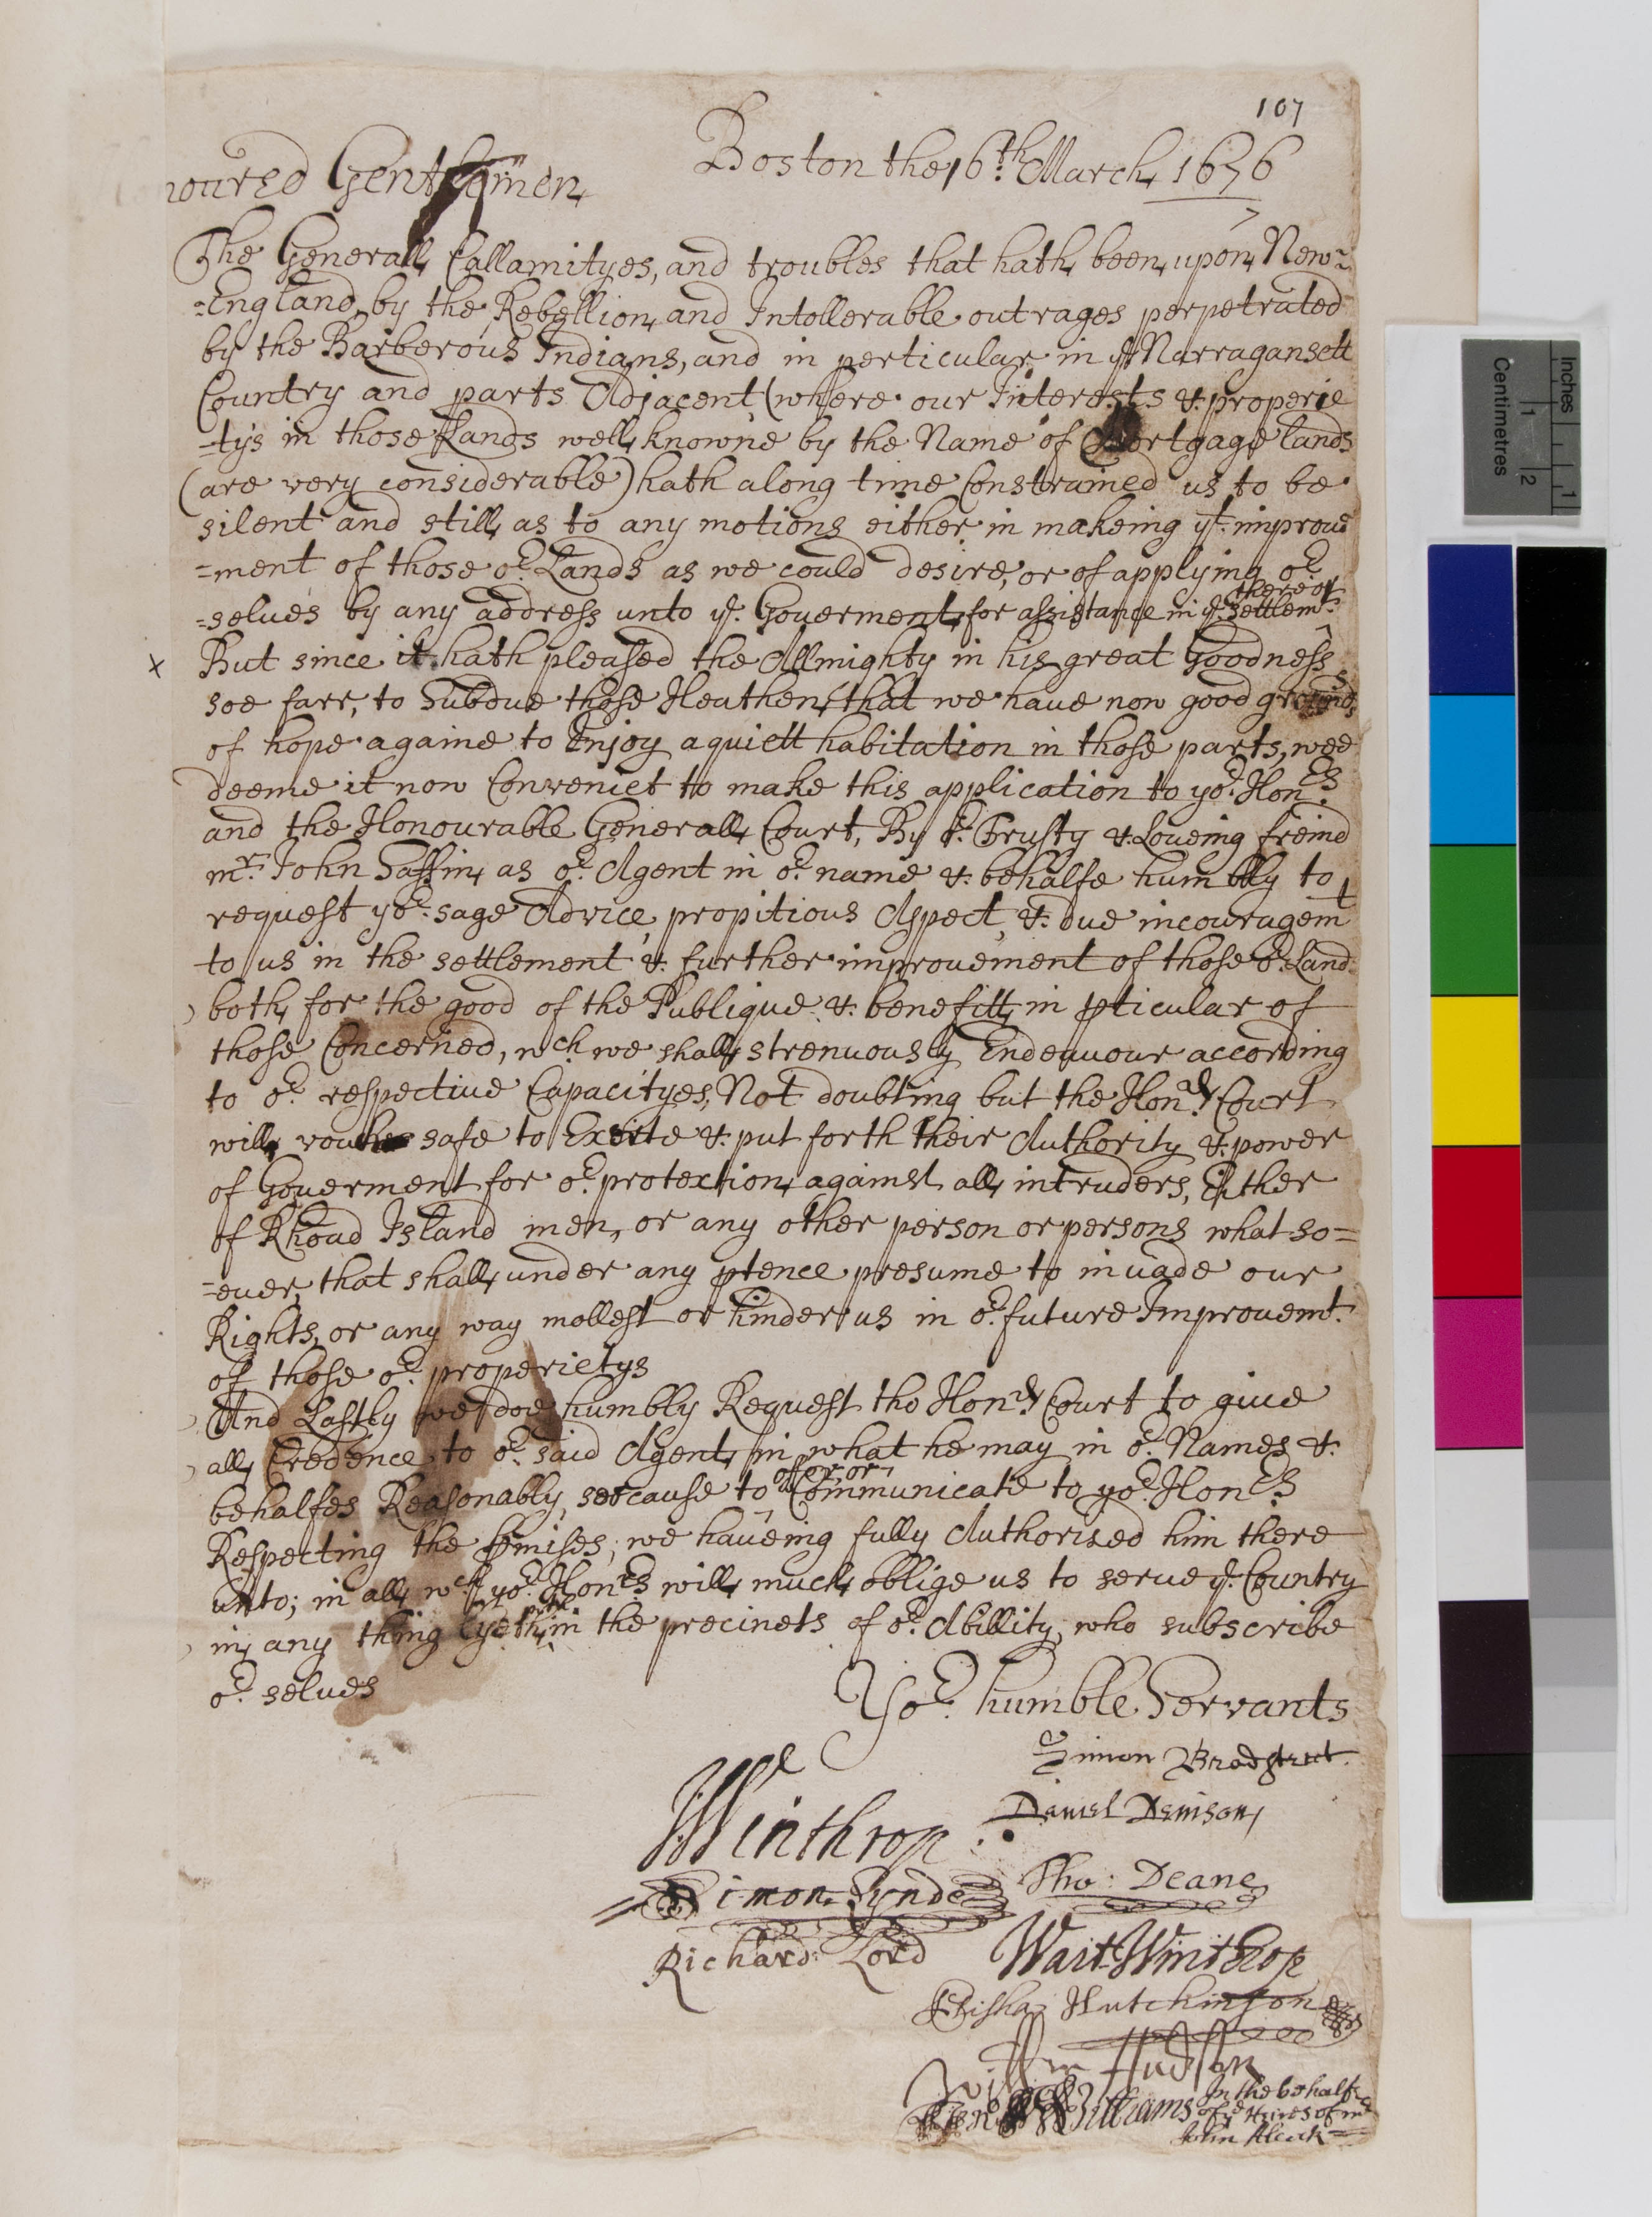 107
Boston the 16th. March 1676
7
noured Gentlemen
The Generall Callamityes, and troubles that hath been upon New=
=England, by the Rebellion and Intollerable outrages perpetrated
by the Barberous Indians, and in perticular in ye Narragansett
Country and parts Adjacent (where our Interests &. properie
=tys in those Lands well knowne by the Name of Mortgage lands
(are very considerable) hath along time Constrained us to be
silent and still, as to any motions either in makeing yt. improue
=ment of those or. Lands as we could desire, or of applying or.
=selues by any address unto ye. Gouerment for assistance in ye. settlemt. thereof
x But since it hath pleased the Allmighty in his great Goodness
soe farr, to Subdue those Heathen, that we haue now good grounds
of hope againe to Enjoy aquiett habitation in those parts, wee
deeme it now Conveniet to make this application to yor. Honrs.
and the Honourable Generall Court, By or. Trusty &. Loueing freind
mr. John Saffin, as or. Agent in or. name &. behalfe humbly to
request yor. sage Advice, propitious Aspect, &. due incouragemt
to us in the settlement &. further improuement of those or. Land
both for the good of the Publique &. benefitt in pticular of
those Concerned, wch. we shall strenuously Endeauour according
to or. respectiue Capacityes, Not doubting but the Honrd. Court
will vouch safe to Exerte &. put forth their Authority &. power
of Gouerment for or. protextion against all intruders, Either
of Rhoad Island men, or any other person or persons what so=
=euer, that shall under any ptence presume to inuade our
Rights, or any way mollest or hinder us in or. future Improuemt.
of those or. properietys
And Lastly we doe humbly Request the Honrd. Court to giue
all Credence to or. said Agent, in what he may in or. Names &.
behalfes Reasonably see cause to offer, or Communicate to yor. Honrs.
Respecting the pmises; we haueing fully Authorised him there
unto; in all wch yor. Honrs will much oblige us to serue ye. Country
in any thing lyeth within the precincts of or. Abillity, who subscribe
or. selues
Yor. humble Servants
Simon Bradstreet.
Daniel Denison
Winthrop
Tho: Deane
Simon Lynde
Richard: Lord
Wait Winthrop
Elisha Hutchinson
William Hudson
Williams In the behalfe
of ye Heires of mr
John Alcock
Inches
Centimetres
1
2
1